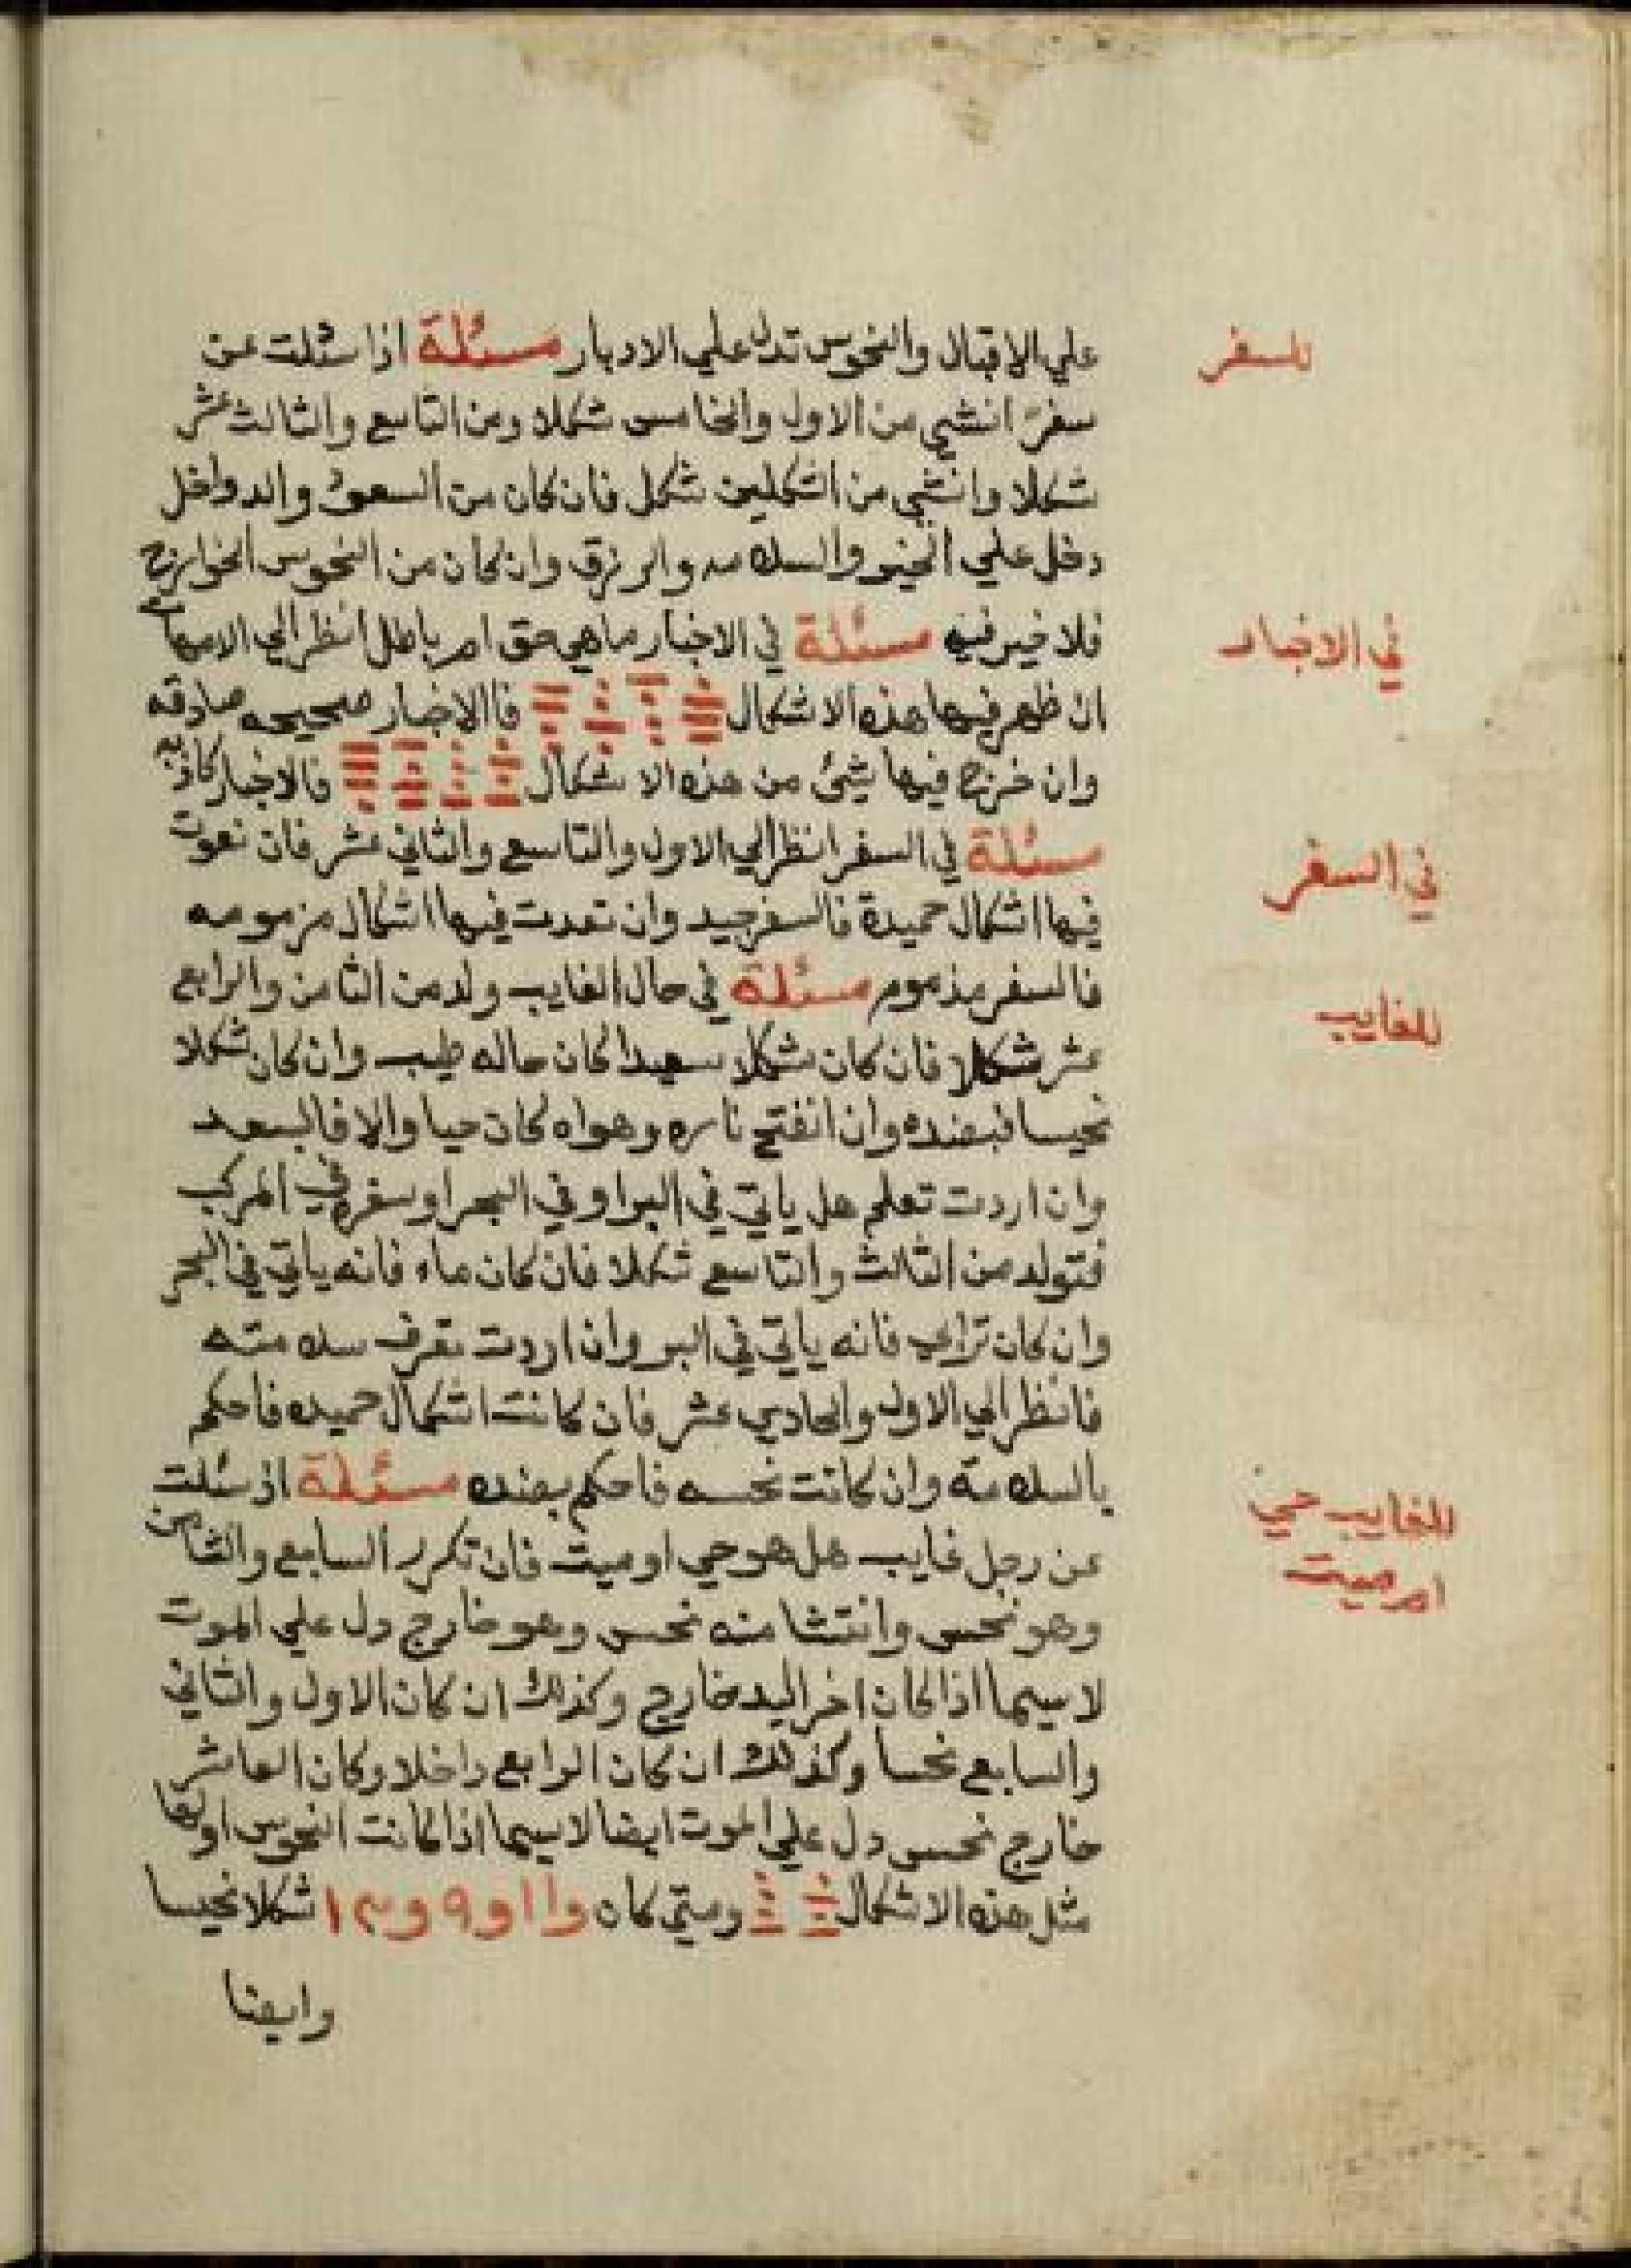 علي الاقبال والنحوس تدل علي الادبار مسئلة اذا سئلت عن
للسفر
سفر انشي من الاول والخامس شكلا ومن التاسع والثالث عشر
شكلا وانشي من الشكلين شكل فان كان من السعود والدواخل
دخل علي الخير والسلامه والرزق وان كان من النحوس الخوارج
فلا خير فيه مسئلة في الاخبار ماهي حق ام باطل انظر الي الامهات
في الاخبار
ان ظهر فيها هذه الاشكال فاالاخبار صحيحه صادقه
وان خرج فيها شئ من هذه الاشكال فالاخبار كاذبه
مسئلة في السفر انظر الي الاول والتاسع والثاني عشر فان
في السفر
فيها اشكال حميدة فالسفر جيد وان تعدت فيها اشكال مزمومه
فالسفر مذموم مسئلة في حال الغايب ولد من الثامن والرابع
للغايب
عشر شكلا فان كان شكلا سعيدا كان حاله طيب وان كان شكلا
نحيسا فبضده وان انفتح ناره وهواه كان حيا والا فالبسعد
وان اردت تعلم هل ياتي في البر او في البحر او سفره في المركب
فتولد من الثالث والتاسع شكلا فان كان ماء فانه ياتي في البحر
وان كان ترابي فانه ياتي في البر وان اردت تعرف سلامته
فانظر الي الاول والحادي عشر فان كانت اشكال حميده فاحكم
بالسلامة وان كانت نحسه فاحكم بضده مسئلة اذ سئلت
للغايب حي
ام ميت
عن رجل غايب هل هو حي او ميت فان تكرر السابع والثامن
وهو نحس وانتشا منه نحس وهو خارج دل علي الموت
لا سيما اذا كان اخر اليد خارج وكذلك ان كان الاول والثاني
والسابع نحسا وكذلك ان كان الرابع داخلا وكان العاشر
خارج نحس دل علي الموت ايضا لا سيما اذا كانت النحوس
مثل هذه الاشكال ومتي كان وا ١ و ٩ و ١٣ شكلا نحيسا
وايضا